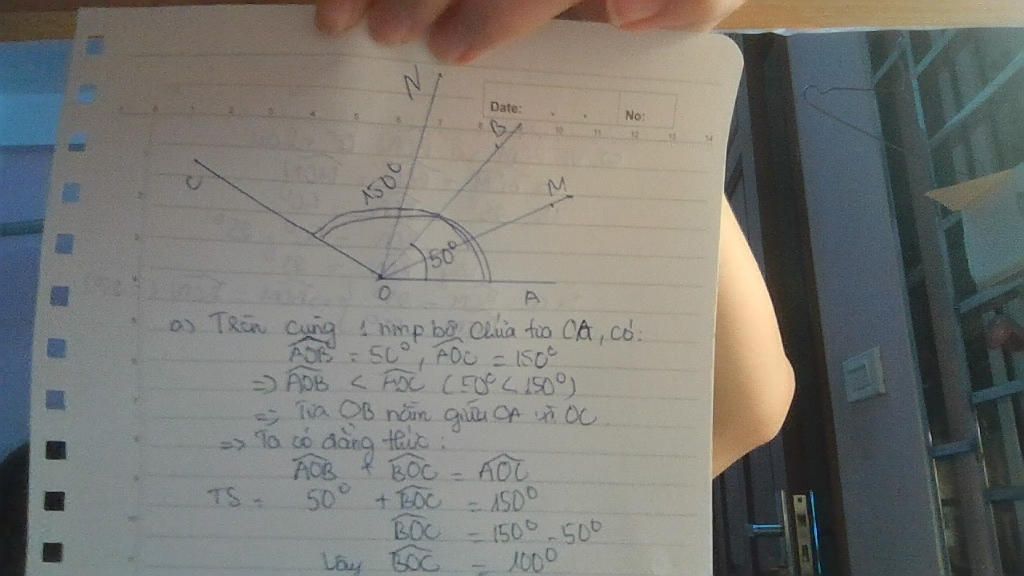 Date:
No:
N
B
M
C
150°
50°
O
A
a) Trên cùng 1 nmp bờ chứa tia OA, có:
AOB = 50°, AOC = 150°
=> AOB < AOC (50° < 150°)
=> Tia OB nằm giữa OA và OC.
=> Ta có đẳng thức:
AOB + BOC = AOC
TS = 50° + BOC = 150°
BOC = 150° - 50°
Vậy BOC = 100°